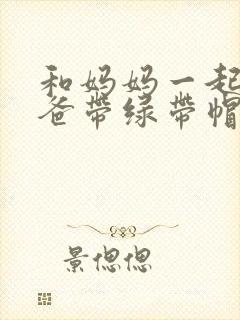 和妈妈一起
爸带绿带帽
景偲偲